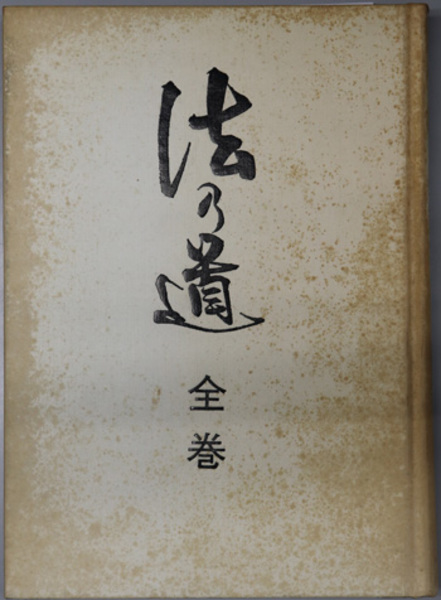 法乃道
全巻